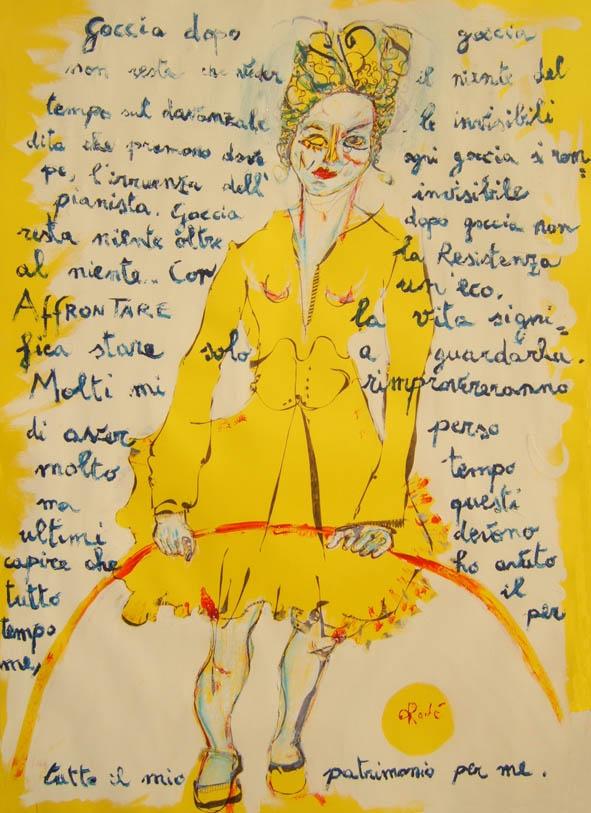 Goccia dopo goccia
non resta che veder il niente del
tempo sul davanzale le invisibili
dita che premono dove ogni goccia si rom=
pe, l'irruenza dell' invisibile
pianista. Goccia dopo goccia non
resta niente oltre la Resistenza
al niente.. Con un'eco.
AffRONTARE la vita signi=
fica stare solo a guardarla.
Molti mi rimprovereranno
di aver perso
molto tempo
ma questi
ultimi devono
capire che ho avuto
tutto il
tempo per
me,
tutto il mio patrimonio per me.